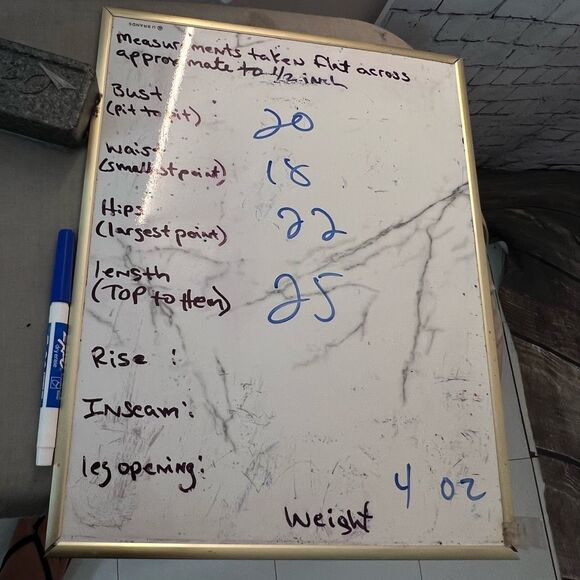 © U BRANDS
measurements taken flat across
approximate to 1/2 inch
Bust
(pit to pit) 20
waist
(smallest point) 18
Hips
(largest point) 22
length
(TOP to Hem) 25
Rise :
Inseam:
leg opening:
4 oz
Weight